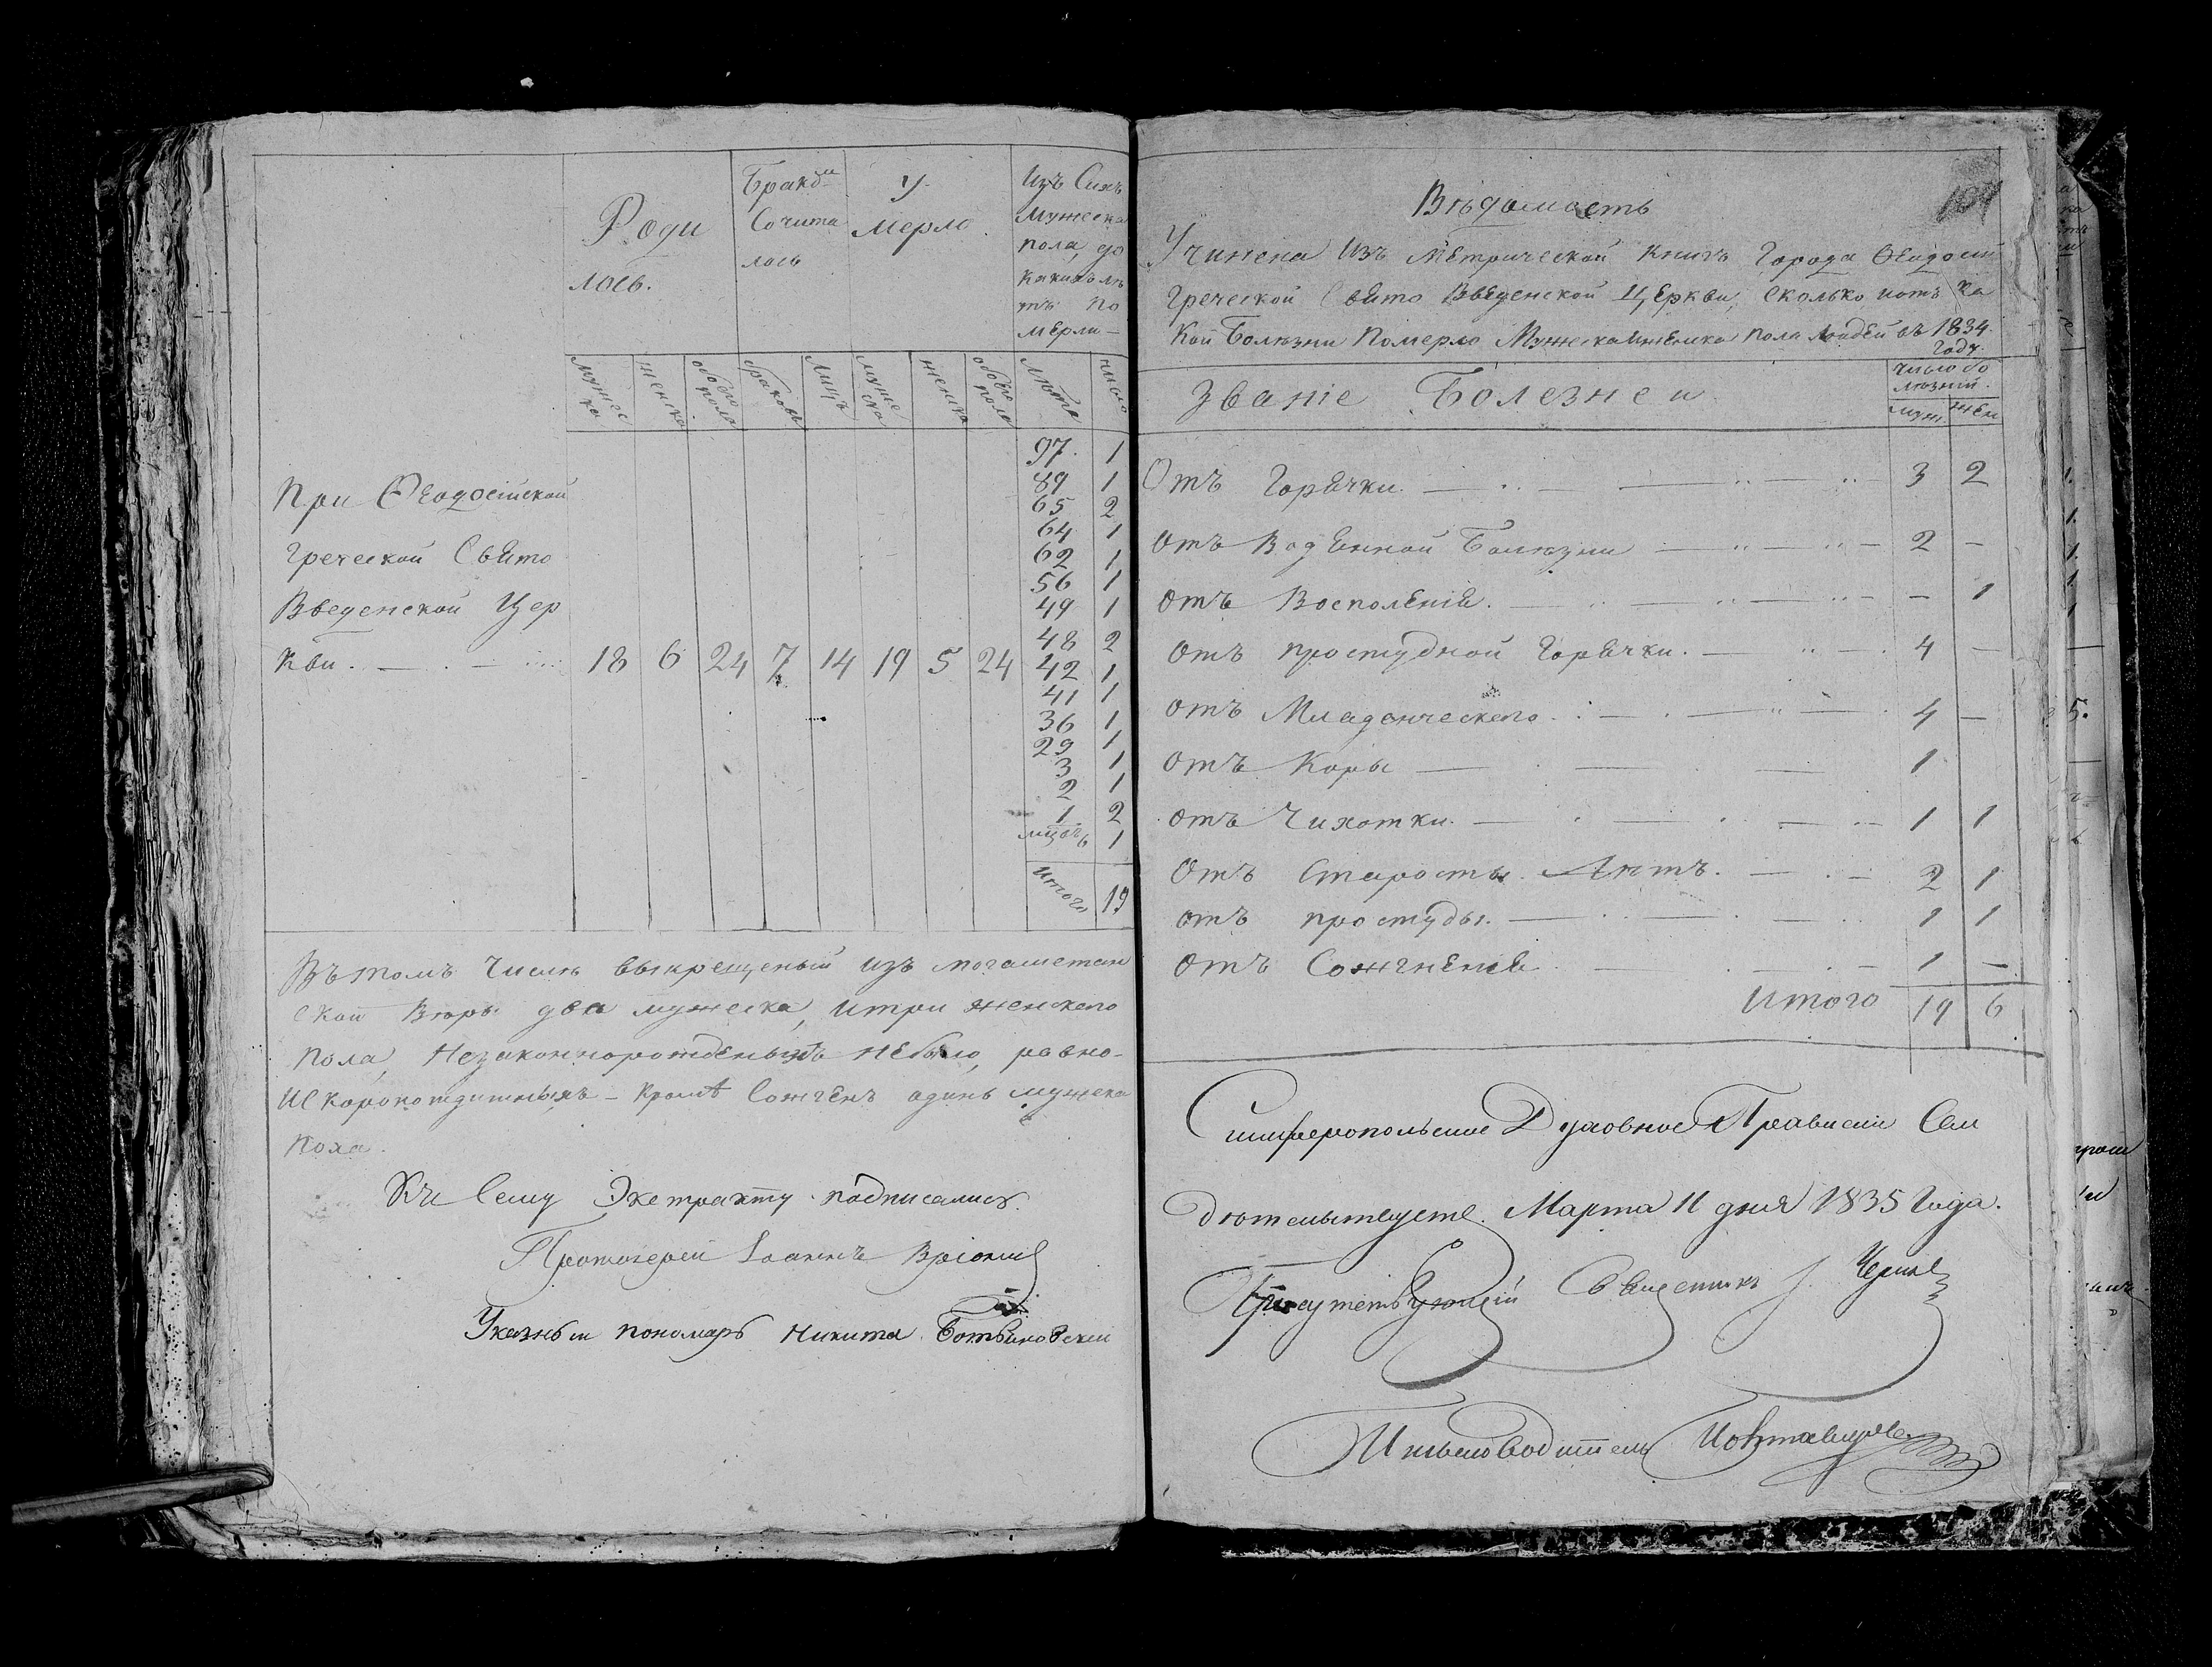 Роди
лось.
Бракомъ
Сочита
лось
У
мерло.
Изъ Сихъ
Мужеска
пола, до
какихъ лѣ
тъ по
мерли —
Мужес
ка
Женска
обоего
пола
браковъ
Лицъ
муже
ска
женска
обоего
пола
Лѣта
число
97. 1
89 1
65 2
64 1
62 1
56 1
49 1
48 2
42 1
41 1
36 1
29 1
3 1
2 1
1. 2
1
Итого 19
При Ѳеодосійской
Греческой Свято
Введенской Цер
кви. 18 6 24 7 14 19 5 24
Въ томъ Числѣ выкрещеный изъ могаметан
ской Вѣры два мужеска, и три женскаго
пола, Незаконнорожденыхъ небыло, равно-
И скоропотдитныхъ - кромѣ Сожгенъ одинъ мужеска
пола.
Къ Сему Экстракту подписались.
Протоіерей Іоаннъ
Указный пономарь Никита Ботвиновский
Вѣдомость
Учинена Изъ Метрической Книгъ Города Ѳеодосіи
Греческой Свято Введенской Церкви, Сколько и отъ ка
кой Болѣзни Померло Мужеска и женска пола людей въ 1834.
Году.
Званіе Болезней
Число бо
лѣзній.
муж. жен
Отъ Горячки. 3 2
Отъ Водянной Болѣзни 2 —
Отъ Восполенія. — 1
Отъ простудной Горячки. 4 —
Отъ Младенческаго. 4 —
Отъ Коры 1
Отъ Чихотки. 1 1
Отъ Старости Лѣтъ. 2 1
Отъ простуды. 1 1
Отъ Сожгненія. 1 —
Итого 19 6
Симферопольское Духовное Правленіе Сви
дѣтельствуетъ. Марта 11 дня 1835 Года.
Присутствующій Священникъ І.
Письмоводитель